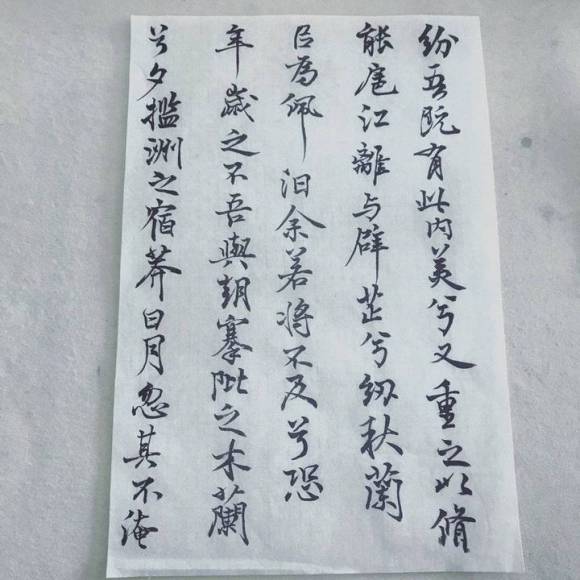 纷吾既有此内美兮又重之以脩
能扈江離与辟芷兮纫秋蘭
㠯為佩汨余若将不及兮恐
年歲之不吾與朝搴阰之木蘭
兮夕擥洲之宿莽日月忽其不淹